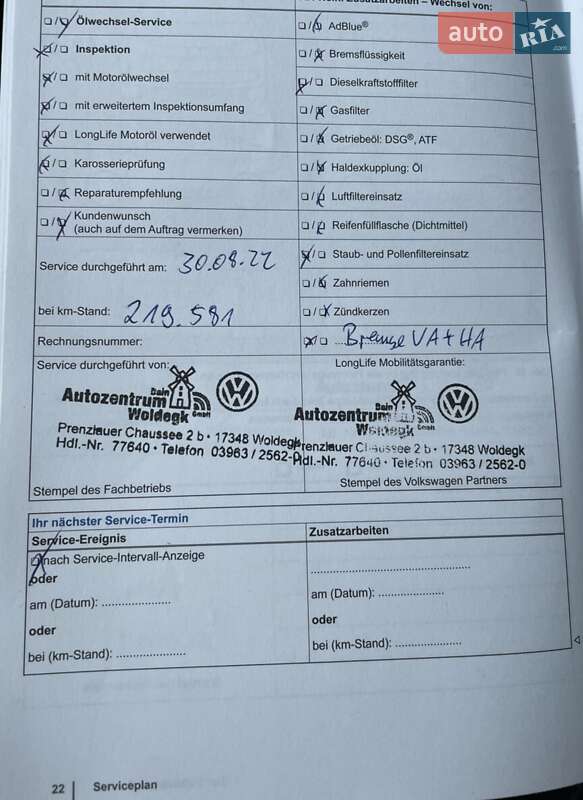 Wechsel von:
Ölwechsel-Service
AdBlue®
Inspektion
Bremsflüssigkeit
mit Motorölwechsel
Dieselkraftstofffilter
mit erweitertem Inspektionsumfang
Gasfilter
LongLife Motoröl verwendet
Getriebeöl: DSG®, ATF
Karosserieprüfung
Haldexkupplung: Öl
Reparaturempfehlung
Luftfiltereinsatz
Kundenwunsch
(auch auf dem Auftrag vermerken)
Reifenfüllflasche (Dichtmittel)
Staub- und Pollenfiltereinsatz
Service durchgeführt am: 30.08.22
Zahnriemen
bei km-Stand: 219.581
Zündkerzen
Rechnungsnummer:
Bremse VA+HA
Service durchgeführt von:
LongLife Mobilitätsgarantie:
Dain
Autozentrum
Woldegk GmbH
Prenzlauer Chaussee 2 b • 17348 Woldegk
Hdl.-Nr. 77640 • Telefon 03963 / 2562-0
Stempel des Fachbetriebs
Dain
Autozentrum
Woldegk GmbH
Prenzlauer Chaussee 2 b • 17348 Woldegk
Hdl.-Nr. 77640 • Telefon 03963 / 2562-0
Stempel des Volkswagen Partners
Ihr nächster Service-Termin
Service-Ereignis
Zusatzarbeiten
nach Service-Intervall-Anzeige
oder
am (Datum): .....................
am (Datum): .....................
oder
oder
bei (km-Stand): .....................
bei (km-Stand): .....................
22 Serviceplan
auto RIA .com